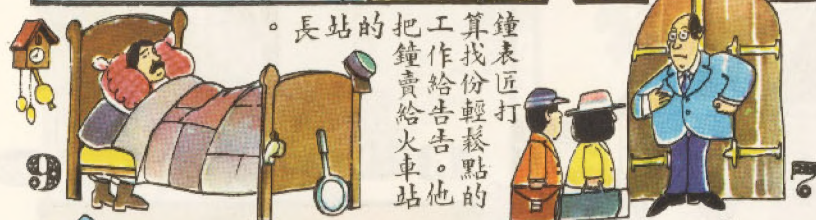 鐘表匠打
算找份輕鬆點的
工作給告告。他
把鐘賣給火車站
的站長。